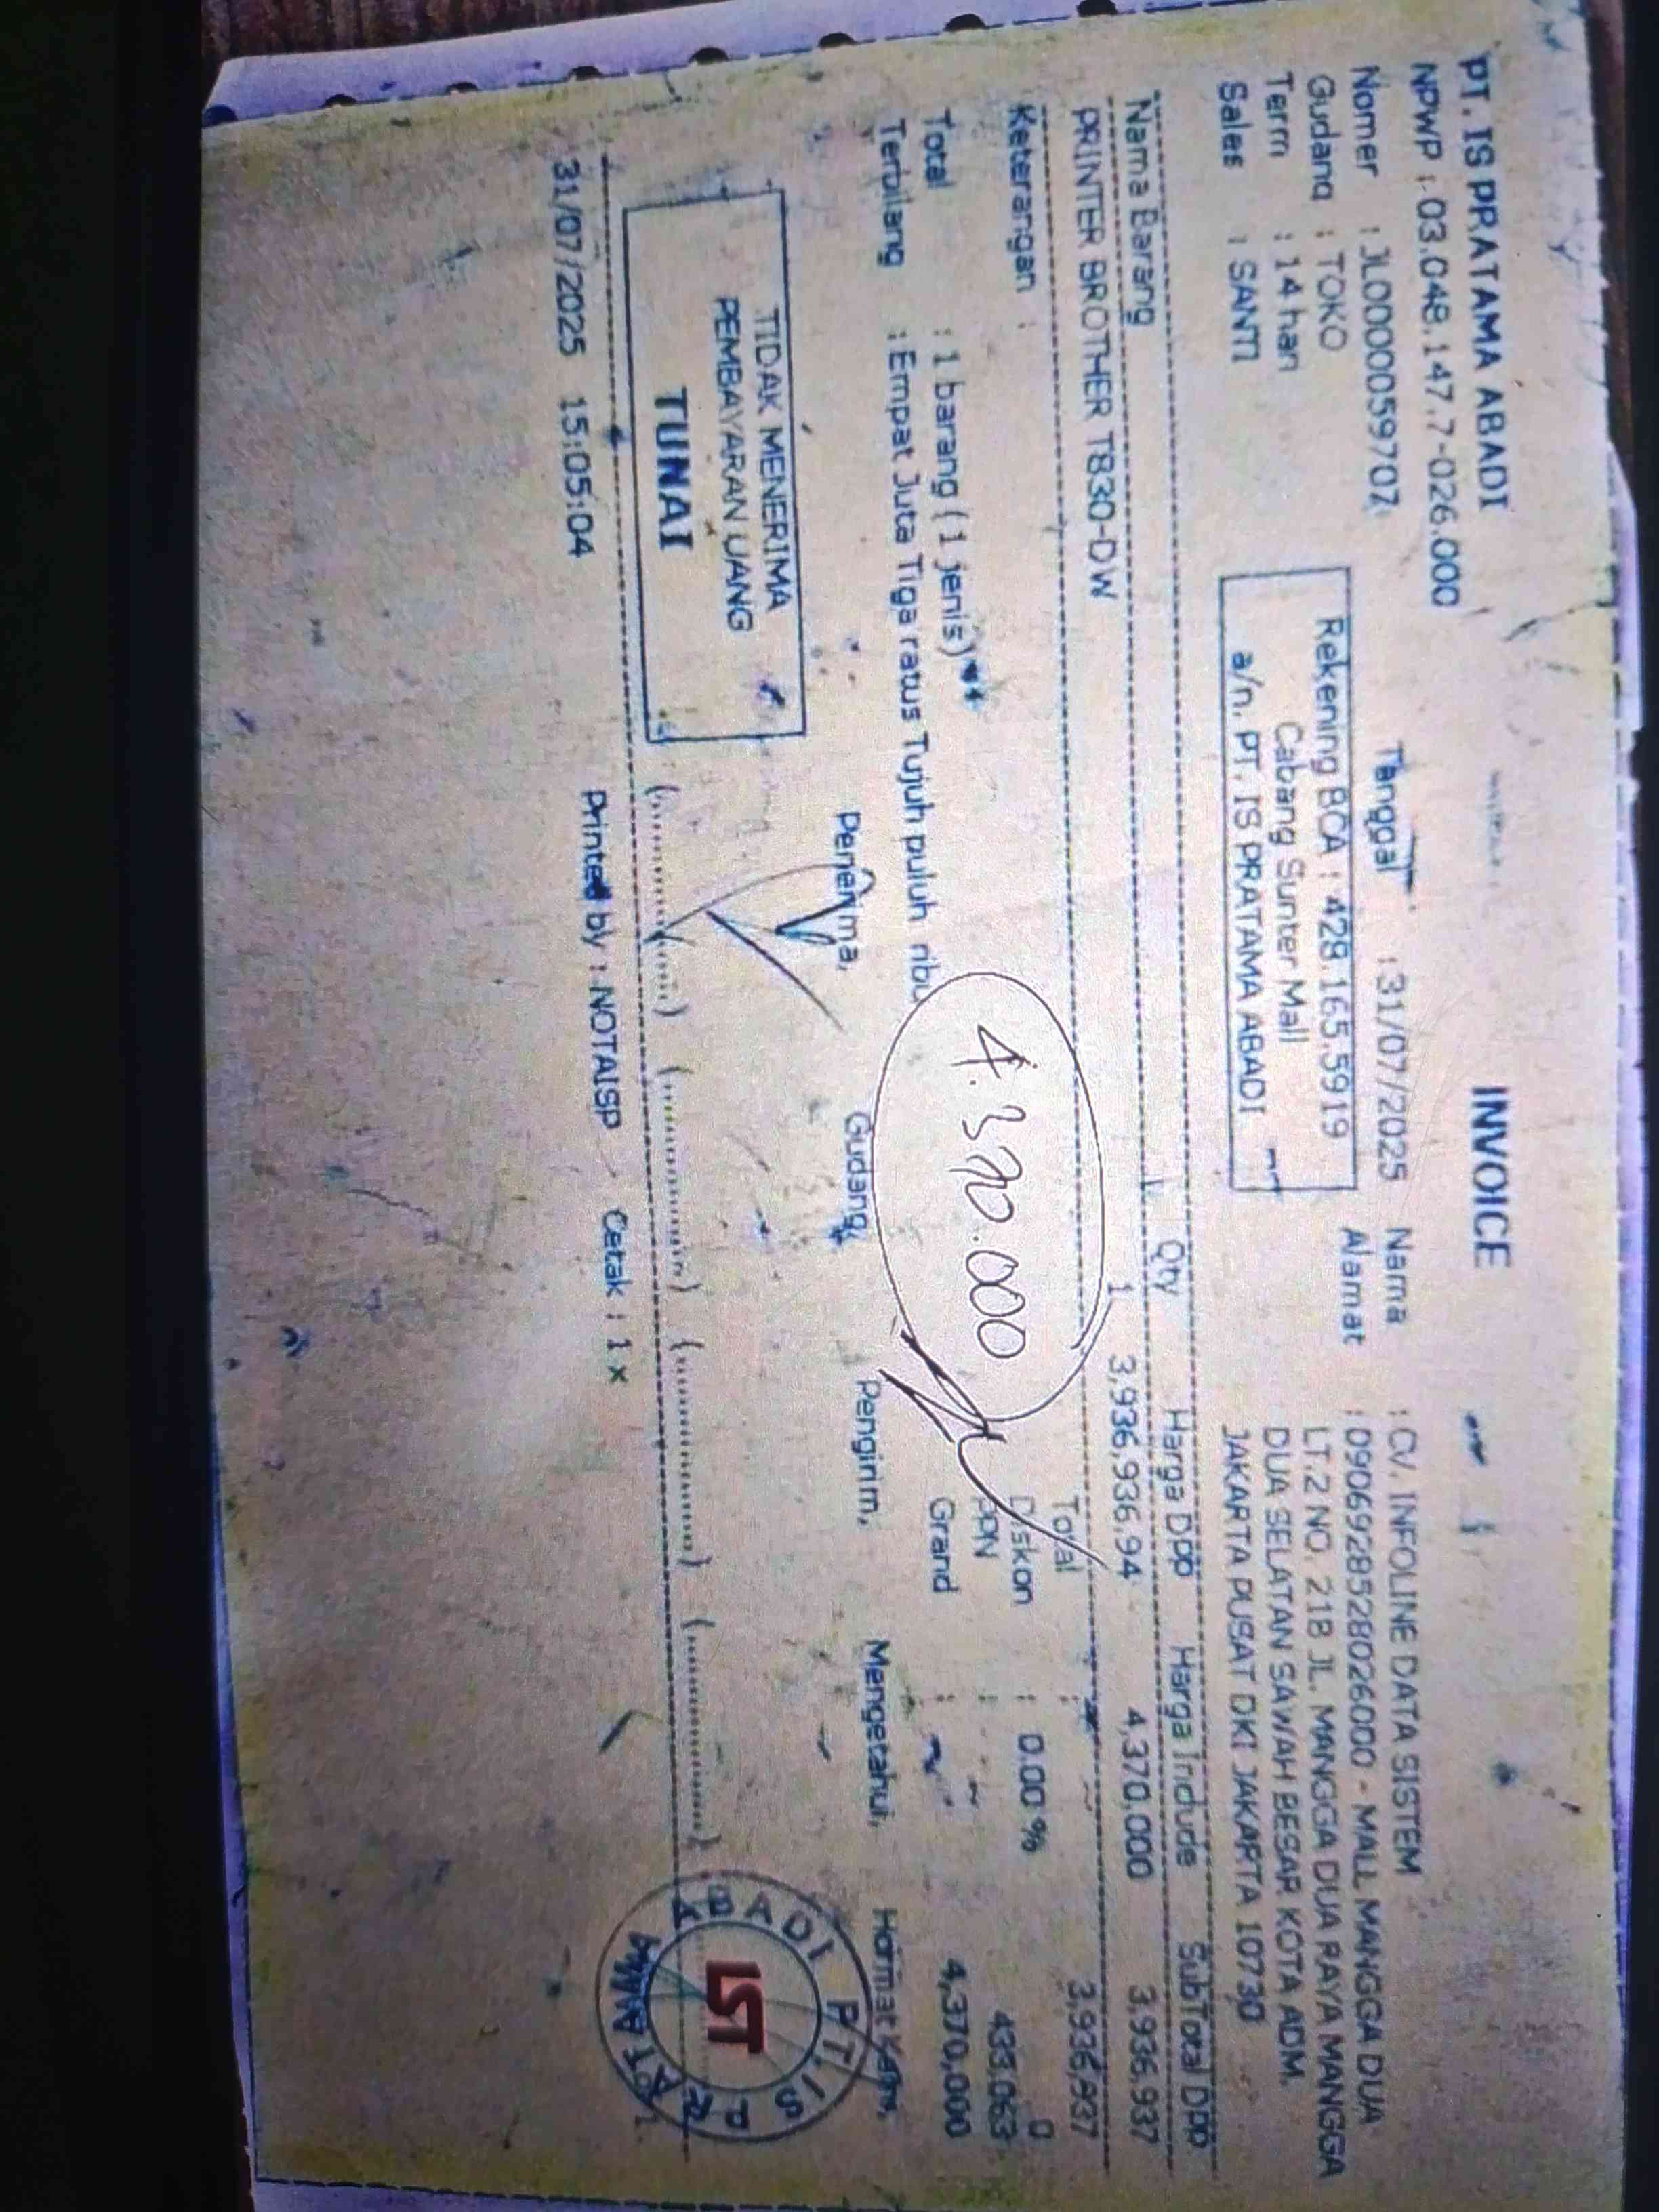 PT. IS PRATAMA ABADI
INVOICE
NPWP : 03.048.147.7-026.000
Nomer : JL0000059707
Tanggal : 31/07/2025
Nama : CV. INFOLINE DATA SISTEM
Gudang : TOKO
Alamat : 0906928528026000 - MALL MANGGA DUA
Term : 14 hari
LT.2 NO. 21B JL. MANGGA DUA RAYA MANGGA
Sales : SANTI
DUA SELATAN SAWAH BESAR KOTA ADM.
JAKARTA PUSAT DKI JAKARTA 10730
Rekening BCA : 428.165.5919
Cabang Sunter Mall
a/n. PT. IS PRATAMA ABADI
Nama Barang Qty Harga Dpp Harga Include SubTotal DPP
PRINTER BROTHER T830-DW 1 3,936,936.94 4,370,000 3,936,937
Keterangan :
Total : 3,936,937
Diskon : 0.00 % 0
Total : 1 barang (1 jenis)
PPN : 433,063
Terbilang : Empat Juta Tiga ratus Tujuh puluh ribu
Grand : 4,370,000
4.370.000
Penerima, Gudang, Pengirim, Mengetahui, Hormat Kami,
TIDAK MENERIMA
PEMBAYARAN UANG
TUNAI
(..............) (..............) (..............) (..............)
PT. IS PRATAMA ABADI
IST
31/07/2025 15:05:04 Printed by : NOTAISP Cetak : 1 x